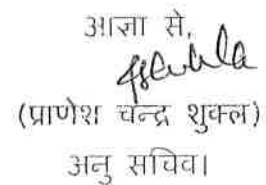 आज्ञा से,
(प्राणेश चन्द्र शुक्ल)
अनु सचिव।